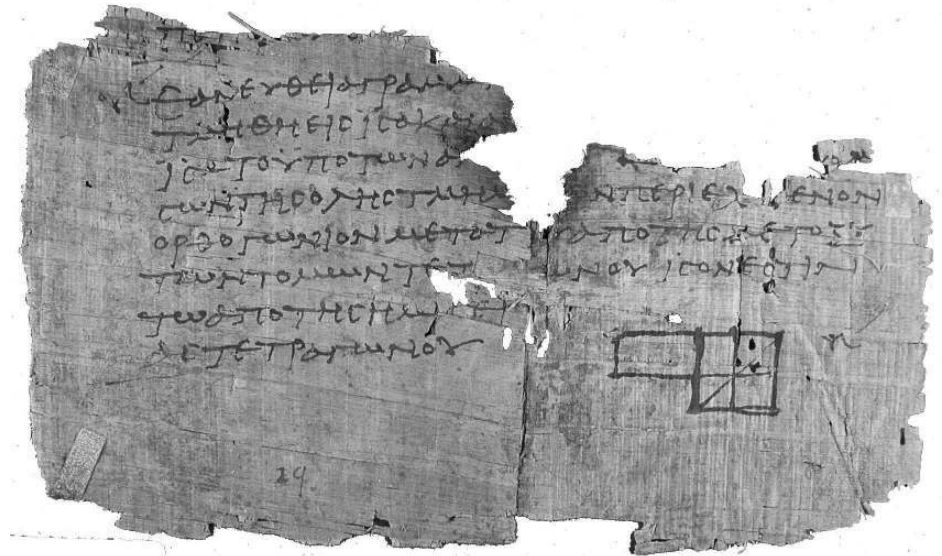 ΕΑΝ ΕΥΘΕΙΑ ΓΡΑΜΜ
ΤΜΗΘΗ ΕΙC ΙCΑ ΚΑΙ ΑΝ
ΙCΑ ΤΟ ΥΠΟ ΤΩΝ ΑΝ
CΩΝ ΤΗC ΟΛΗC ΤΜΗΜ Ν ΠΕΡΙΕΧΟΜΕΝΟΝ
ΟΡΘΟΓΩΝΙΟΝ ΜΕΤΑ ΤΟΥ ΑΠΟ ΤΗC ΜΕΤΟΞΥ
ΤΩΝ ΤΟΜΩΝ ΤΕΤΡΑΓΩΝΟΥ ΙCΟΝ ΕCΤΙΝ
ΤΩ ΑΠΟ ΤΗC ΗΜΙ
ΑC ΤΕΤΡΑΓΩΝΟΥ
29